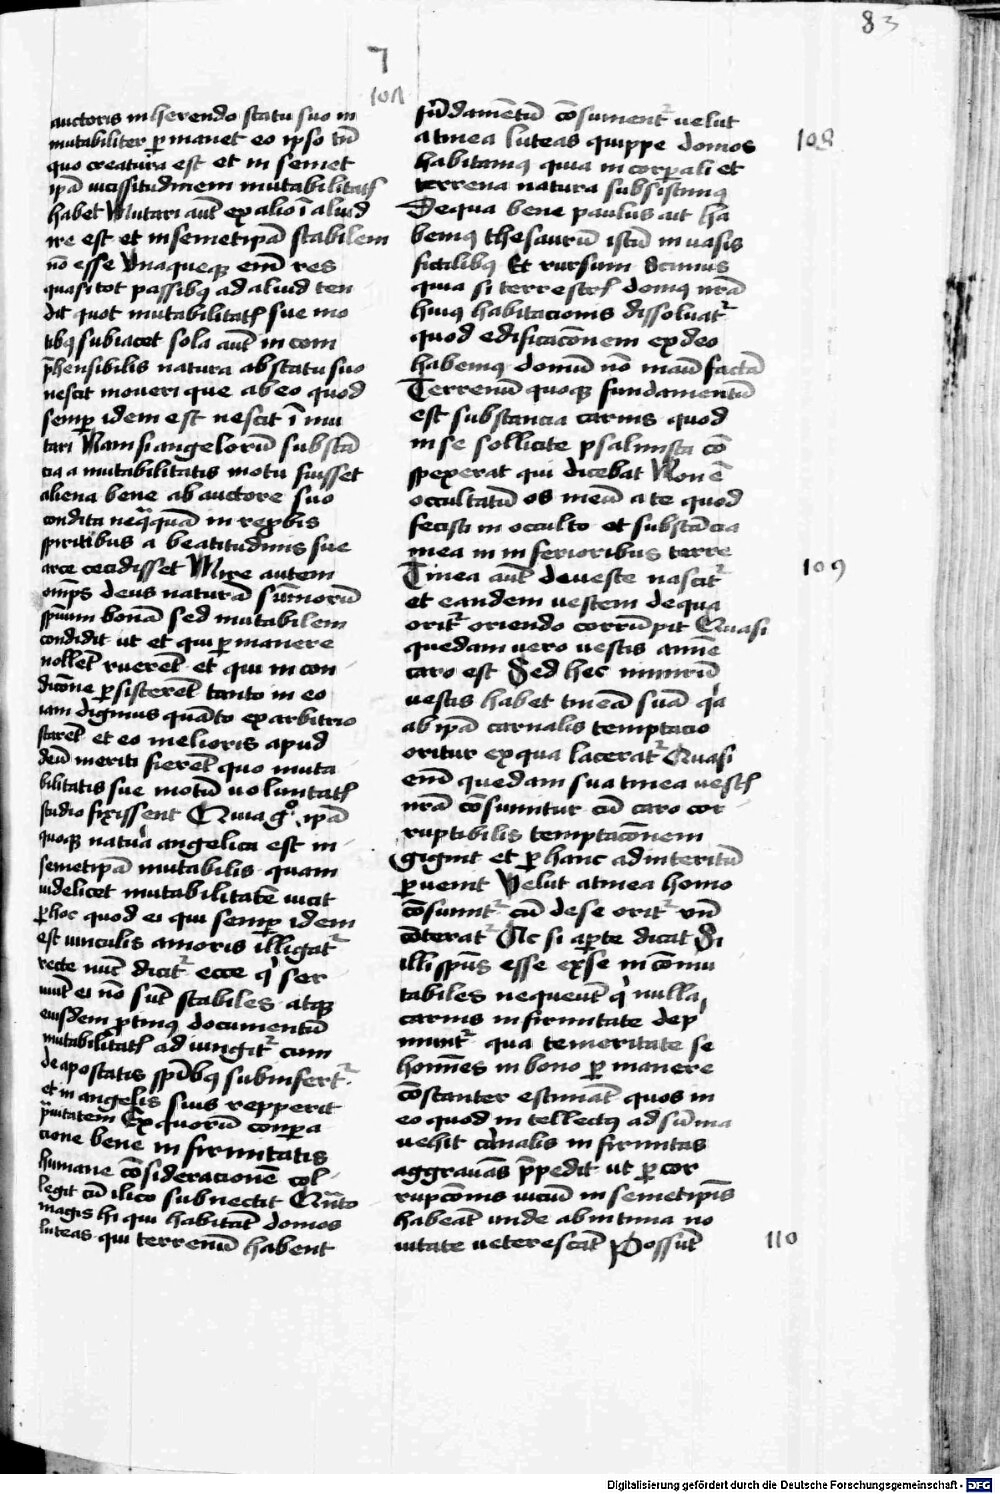 83
7
101
auctoris inherendo statu suo in
mutabiliter ꝑmanet eo ipso tn̄
quo creatura est et in semet
ipā uicissitudinem mutabilitatꝭ
habet Mutari aut̄ ex alio ī aliud
ire est et in semetipā stabilem
nō esse Unaqueqꝫ em̄ res
quasi tot passibꝰ ad aliud ten
dit quot mutabilitatꝭ sue mo
tibꝰ subiacet sola aut̄ in com
p̄hensibilis natura ab statu suo
nescit moueri que ab eo quod
semꝑ idem est nescit īmu
tari Nam si angelorū substā
cia a mutabilitatis motu fuisset
aliena bene ab auctore suo
condita neq̄quā in reprobis
spiritibus a beatitudinis sue
arce cecidisset Mire autem
omp̄s deus naturā sūmorū
spūum bonā sed mutabilem
condidit ut et qui ꝑmanere
nollet̄ rueret̄ et qui in con
dicōne ꝑsisteret̄ tanto in eo
iam dignius quāto ex arbitrio
staret̄ et eo melioris apud
deū meriti fieret̄ quo muta
bilitatis sue motū uoluntatꝭ
studio fixissent Quia gͦ ipā
quoqꝫ natura angelica est in
semetipā mutabilis quam
uidelicet mutabilitatē uicit
ꝑ hoc quod ei qui semꝑ idem
est uinculis amoris illigatᷣ
recte nūc dicitᷣ ecce qͥ ser
uiūt ei nō sūt stabiles atqꝫ
eiusdem ꝓtinꝰ documentū
mutabilitatꝭ adiungitᷣ cum
de apostatis spībꝰ subinfertᷣ
et in angelis suis repperit
prauitatem Ex quorū conꝑa
cione bene infirmitatis
humane cōsideracionē col
legit cū ilico subnectit Quāto
magis hi qui habitāt domos
luteas qui terrenū habent
fūdamētū cōsumentᷣ uelut
a tinea luteas quippe domos 108
habitamꝰ quia in corꝑali et
terrena natura subsistimꝰ
De qua bene paulus ait ha
bemꝰ thesaurū istū in uasis
fictilibꝰ Et rursum Scimus
quia si terrestrꝭ domꝰ nrā
huiꝰ habitacionis dissoluatᷣ
quod edificacōnem ex deo
habemꝰ domū nō manū factā
Terrenū quoqꝫ fundamentū
est substancia carnis quod
in se sollicite psalmista cō
spexerat qui dicebat Non ē
occultatū os meū a te quod
fecisti in occulto et substācia
mea in inferioribus terre
Tinea aut̄ de ueste nascitᷣ 109
et eandem uestem de qua
oritᷣ oriendo corrūpit Quasi
quedam uero uestis anīe
caro est Sed hec nimirū
uestis habet tineā suā qͥa
ab ipā carnalis temptacio
oritur ex qua laceratᷣ Quasi
em̄ quedam sua tinea uestꝭ
nrā cōsumitur cū caro cor
ruptibilis temptacōnem
gignit et ꝑ hanc ad interitū
ꝑuenit Velut a tinea homo
cōsumitᷣ cū de se oritᷣ vn̄
cōteratᷣ Ac si aꝑte dicat Si
illi spūs esse ex se incōmu
tabiles nequeūt qͥ nulla
carnis infirmitate dep̄
muntᷣ qua temeritate se
hoīnes in bono ꝑmanere
cōstanter estimāt quos in
eo quod intellectꝰ ad sūma
uehit carnalis infirmitas
aggrauās p̄pedit ut ꝑ cor
rupcōnis uiciū in semetip̄is
habeāt unde ab intima no
uitate ueterescāt Possūt 110
Digitalisierung gefördert durch die Deutsche Forschungsgemeinschaft - DFG